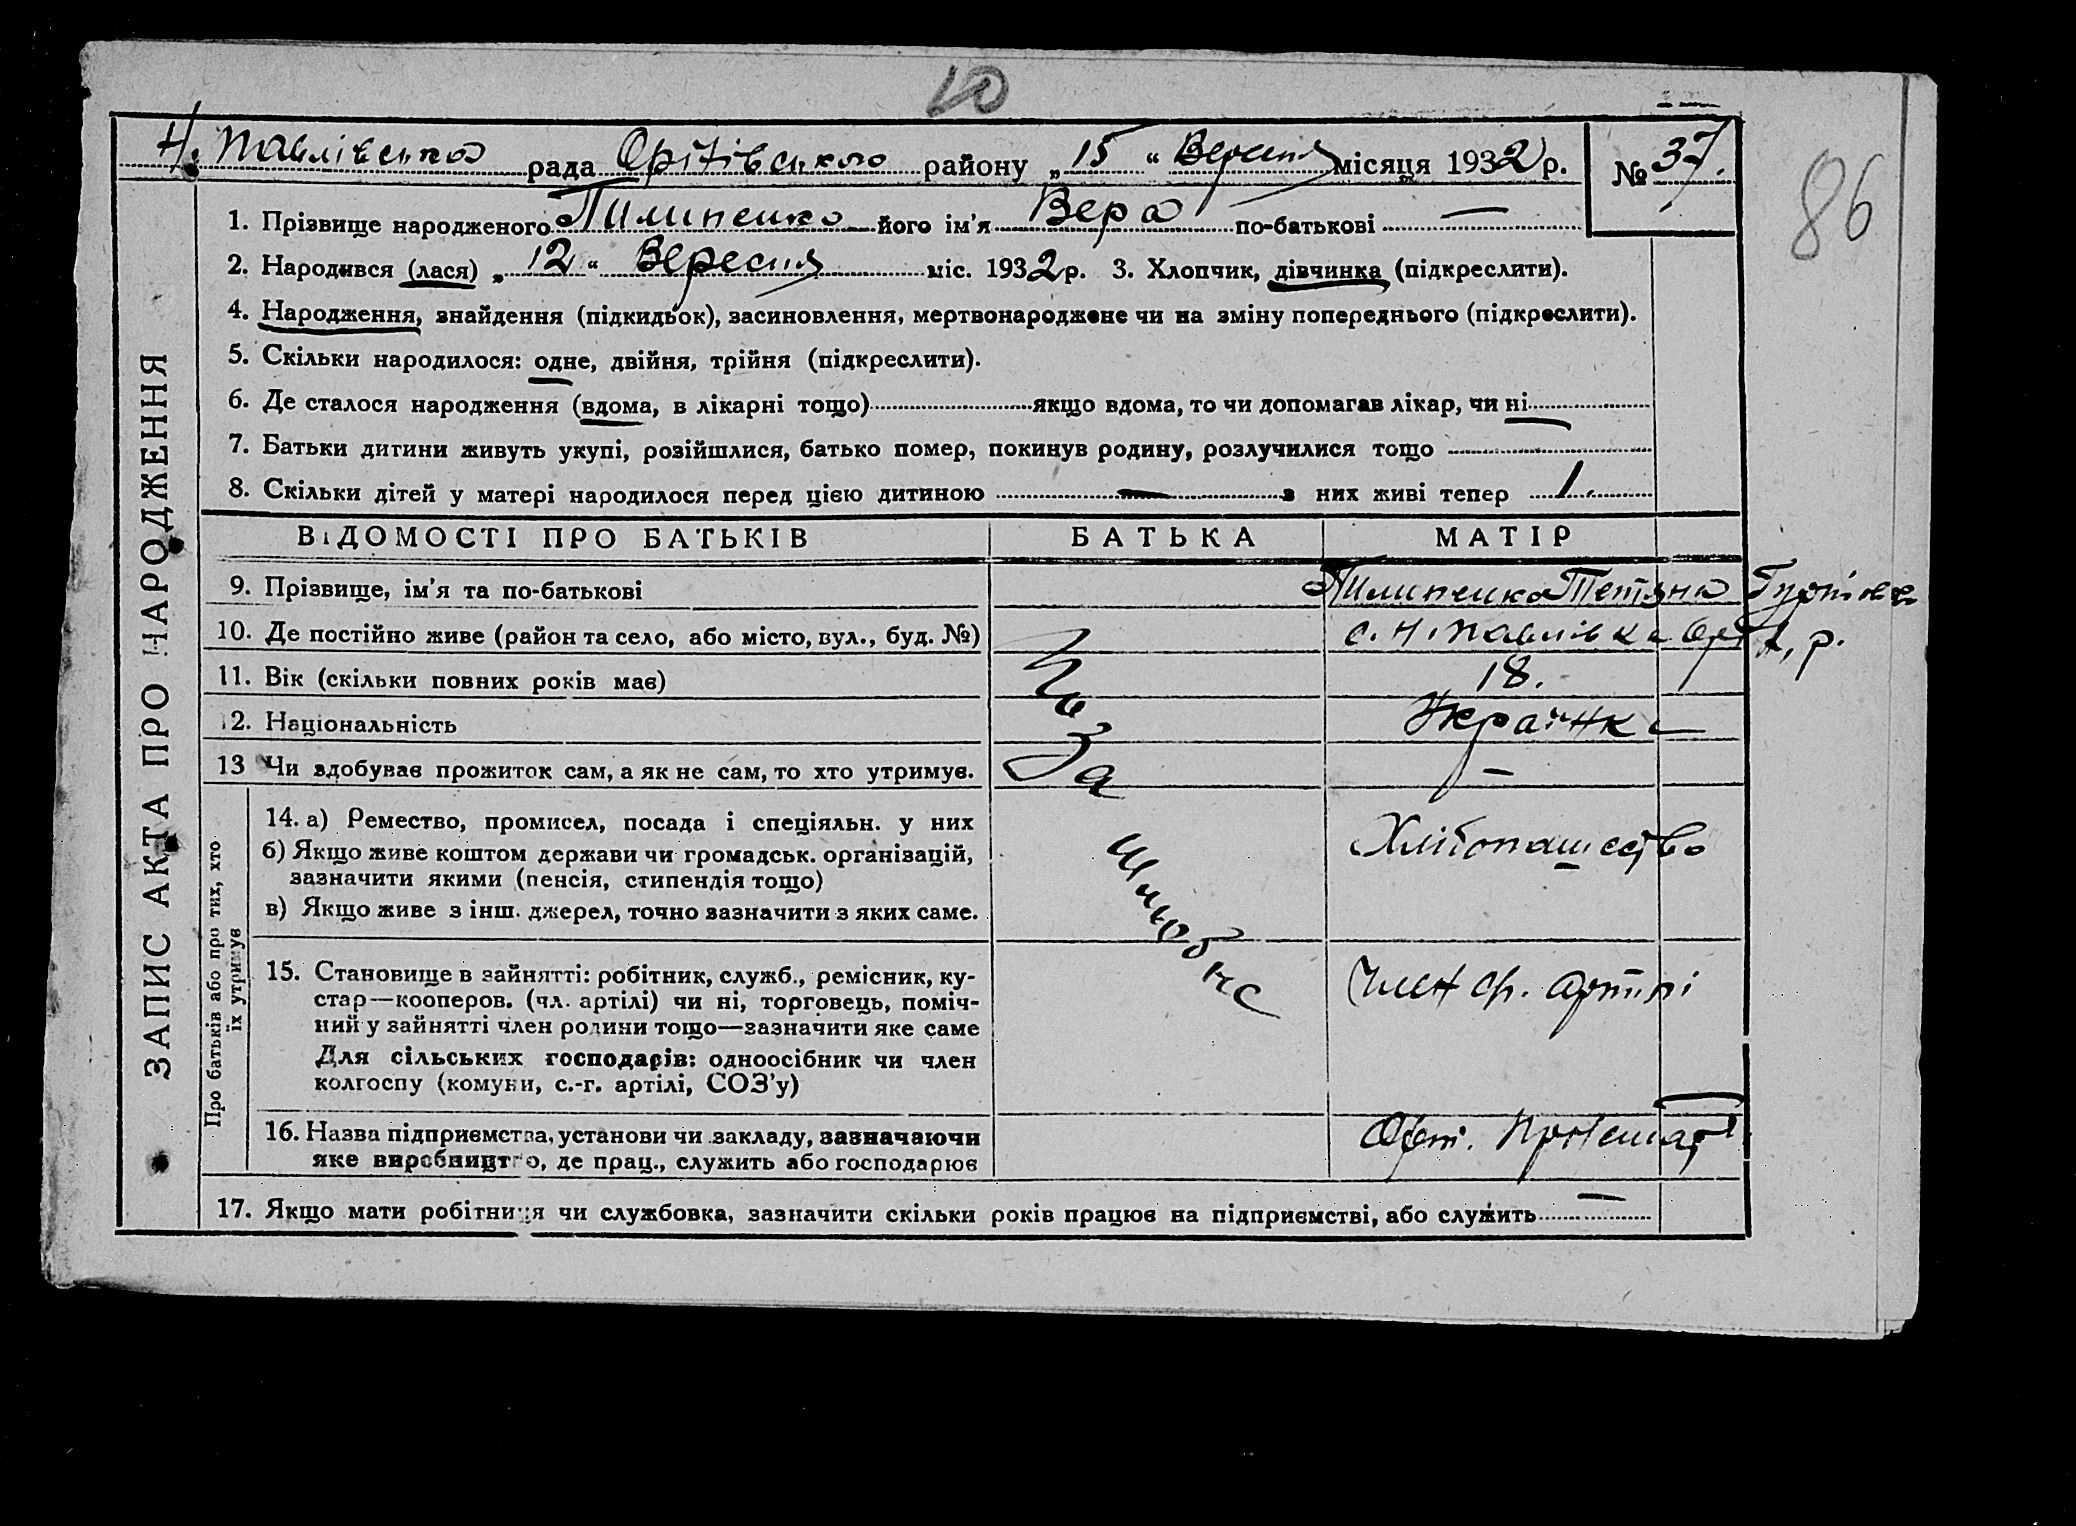 10
Н. Павлівська рада Оріхівського району „15“ Вересня місяця 1932 р. № 37.
86
1. Прізвище народженого Пилипенко його ім'я Вера по-батькові —
2. Народився (лася) „12“ Вересня міс. 1932 р. 3. Хлопчик, дівчинка (підкреслити).
4. Народження, знайдення (підкидьок), засиновлення, мертвонароджене чи на зміну попереднього (підкреслити).
5. Скільки народилося: одне, двійня, трійня (підкреслити).
6. Де сталося народження (вдома, в лікарні тощо) якщо вдома, то чи допомагав лікар, чи ні
7. Батьки дитини живуть укупі, розійшлися, батько помер, покинув родину, розлучилися тощо
8. Скільки дітей у матері народилося перед цією дитиною — з них живі тепер 1.
ЗАПИС АКТА ПРО НАРОДЖЕННЯ
ВІДОМОСТІ ПРО БАТЬКІВ БАТЬКА МАТІР
9. Прізвище, ім'я та по-батькові Пилипенко Тетяна
10. Де постійно живе (район та село, або місто, вул., буд. №) с. Н. Павлівка Оріх. р.
11. Вік (скільки повних років має) 18.
12. Національність Українка
13 Чи здобуває прожиток сам, а як не сам, то хто утримує. —
Поза
шлюбне
Про батьків або про тих, хто
їх утримує
14. а) Ремество, промисел, посада і спеціяльн. у них Хлібопашество
б) Якщо живе коштом держави чи громадськ. організацій,
зазначити якими (пенсія, стипендія тощо)
в) Якщо живе з інш. джерел, точно зазначити з яких саме.
15. Становище в зайнятті: робітник, служб., ремісник, ку-
стар—кооперов. (чл. артілі) чи ні, торговець, поміч- Член ср. артілі
ний у зайнятті член родини тощо—зазначити яке саме
Для сільських господарів: одноосібник чи член
колгоспу (комуни, с.-г. артілі, СОЗ'у)
16. Назва підприємства, установи чи закладу, зазначаючи Арт.
яке виробництво, де прац., служить або господарює
17. Якщо мати робітниця чи службовка, зазначити скільки років працює на підприємстві, або служить —